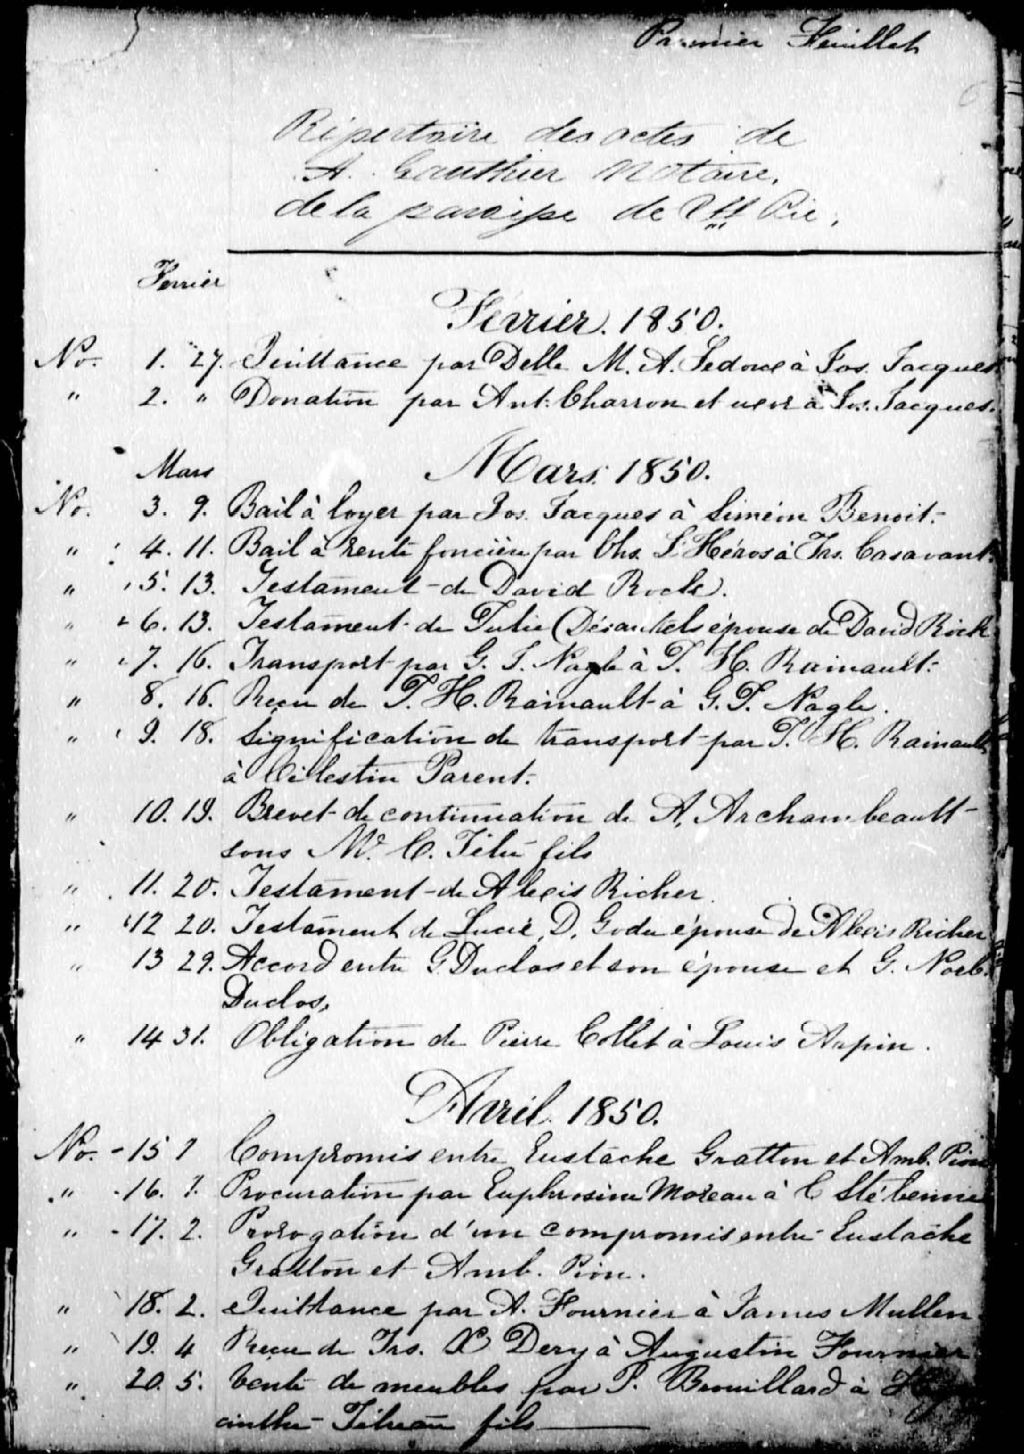 Premier Feuillet
Répertoire des actes de
A. Gauthier Notaire,
de la paroisse de St Pie,
Fevrier
Février. 1850.
No. 1. 27. Quittance par Delle M. A. Ledoux à Jos. Jacques
" 2. " Donation par Ant. Charron et uxor à Jos. Jacques.
Mars Mars 1850.
No. 3. 9. Bail à loyer par Jos. Jacques à Siméon Benoit.
" 4. 11. Bail à rente foncière par Chs. L'Héros à Frs. Casavant
" 5. 13. Testament de David Rocke.
" 6. 13. Testament de Julie Désautels épouse de David Rock
" 7. 16. Transport par G. T. Nagle à T. H. Rainault.
" 8. 16. Recu de T. H. Rainault à G. T. Nagle.
" 9. 18. Signification de transport par T. H. Rainault
à Célestin Parent.
" 10. 19. Brevet de continuation de A. Archambeault
sous Mr. C. Têtu fils
" 11. 20. Testament de Alexis Richer.
" 12 20. Testament de Lucie D. Godu épouse de Alexis Richer
" 13 29. Accord entre G Duclos et son épouse et G. Norb.
Duclos,
" 14 31. Obligation de Pierre Collet à Louis Arpin.
Avril. 1850.
No. 15 1 Compromis entre Eustache Gratton et Amb. Pion
" 16. 1. Procuration par Euphrosine Moreau à C
" 17. 2. Prorogation d'un compromis entre Eustache
Gratton et Amb. Pion.
" 18. 2. Quittance par A. Fournier à James Mullen
" 19. 4 Recu de Frs. X Dery à Augustin Fournier
" 20. 5. Vente de meubles par P. Brouillard à Hya
cinthe fils